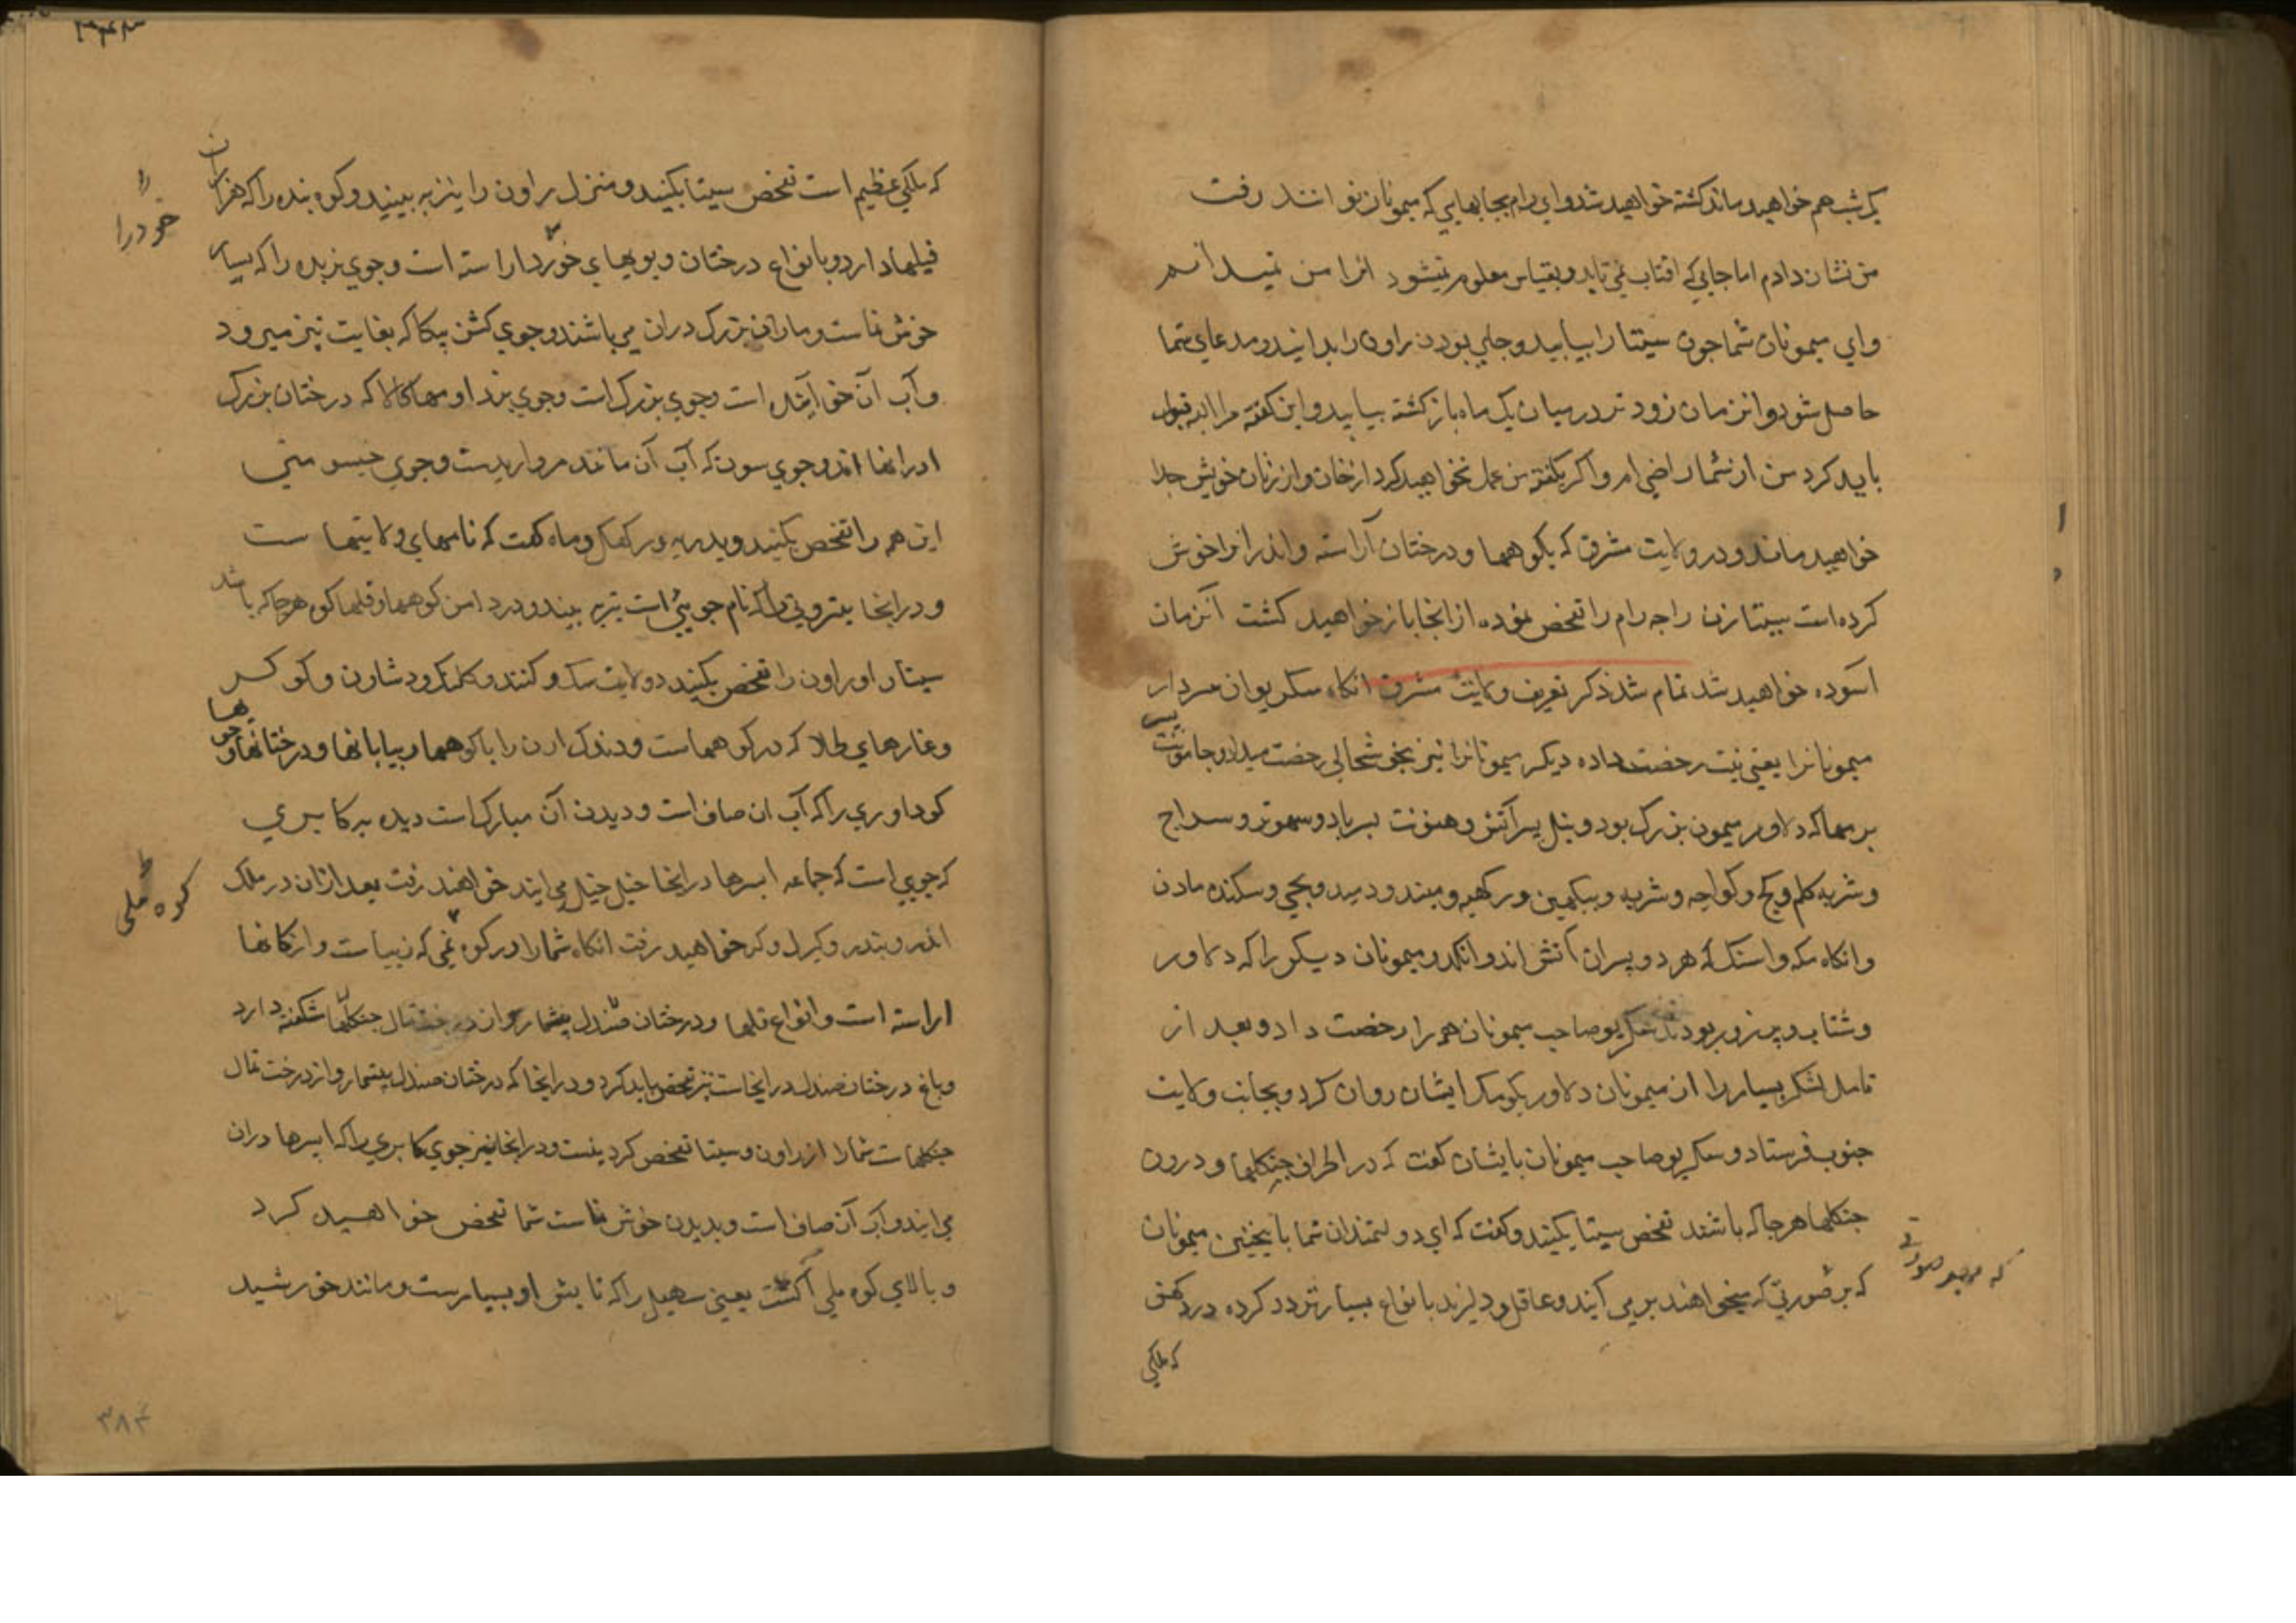 یک شب هم خواهید ماند کشته خواهید شد و ای رام بجابهایی که میمونان توانند رفت
من نشان دادم اما جایی که افتاب نمی تابد و بقیاس معلوم نمیشود انرا من نمیدانم
وای میمونان شما چون سیتا را بیابید و جای بودن راون را بدانید و مدعای شما
حاصل شود و از زمان زود تر در میان یک ماه باز کشته بیایید و این کفته مرا البته قبول
باید کرد من از شما راضی ام و اکر بکفته من عمل نخواهید کرد از خان و از زنان خویش جدا
خواهید ماند و در ولایت مشرق که بکوهها و درختان آراسته و اندر انرا خوش
کرده است سیتا زن راجه رام را تفحص نموده از انجا باز خواهید کشت آنزمان
اسوده خواهید شد تمام شد ذکر تعریف ولایت مشرق انکاه سکریو ان سردار
میمونانرا یعنی بنت رخصت داده دیکر میمونانرا نیز بخوشحالی رخصت میداد و جامونت پسر
برمها که دلاور میمون بزرک بود و نیل پسر آتش و هنونت پسر باد و سهوتر و سداج
و انکاه که هر دو پسران آتش اند و انکد و میمونان دیکر را که دلاور
و شتاب و پر زور بودند سکریو صاحب میمونان همه را رخصت داد و بعد از
تامل لشکر بسیار را از میمونان دلاور بکومک ایشان روان کرد و بجانب ولایت
جنوب فرستاد و سکریو صاحب میمونان بایشان کفت که در اطراف جنکلها و درون
جنکلها هرجا که باشند تفحص سیتا بکنید و کفت که ای دولتمندان شما با ینچنین میمونان
که بر صورتی که میخواهند بر می آیند و عاقل و دلیرند بانواع بسیار تردد کرده در دکهن
که هر صورتی
که ملکی
۳۴۳
که ملکی عظیم است تفحص سیتا بکنید و منزل راون را نیز به بینید و کوه بنده را که هزاران
فیلها دارد و بانواع درختان و بویهای خود را اراسته است و جوی نربده را که بسیار
خود را
خوش نماست و ماران بزرک دران می باشند و جوی کشن بیکا که بغایت تیز میرود
و آب آن خوش آینده است و جوی بزرک است و جوی بزدا و مهاکالا که درختان بزرک
دارد انها اند و جوی سون که آب آن مانند مروارید ست و جوی
این همه را تفحص بکنید و کفت که نامهای ولایتهاست
و در انجا بیتروتی را که نام جویی است نیز به بیند و در دامن کوهها و قلهای کوه هرجا که باشد
سیتا را و راون را تفحص بکنید
و غارهای طلا که در کوههاست و دندک ارن را با کوهها و بیابانها و درختانها و جویها
کوداوری را که آب ان صاف است و دیدن آن مبارک است دیده به کابیری
که جویی است که جماعه ابسرها در انجا خیل خیل می ایند خواهند رفت بعد ازان در ملک
کوه ملی
خواهید رفت انکاه شما را در کوه ملی که زیباست و از کانها
اراسته است و انواع قلها و درختان صندل بیشمار جنکلها شکفته دارد
و باغ درختان صندل در انجاست نیز تفحص باید کرد و در انجا که درختان صندل بیشمار و از درخت تمال
جنکلهاست شما را از راون و سیتا تفحص کردنیست و در انجا نیز جوی کابیری را که ابسرها دران
می ایند و آب آن صاف است و بدیدن خوش نماست شما تفحص خواهید کرد
و بالای کوه ملی آکست یعنی سهیل را که تابش او بسیارست و مانند خورشید
۳۸۴